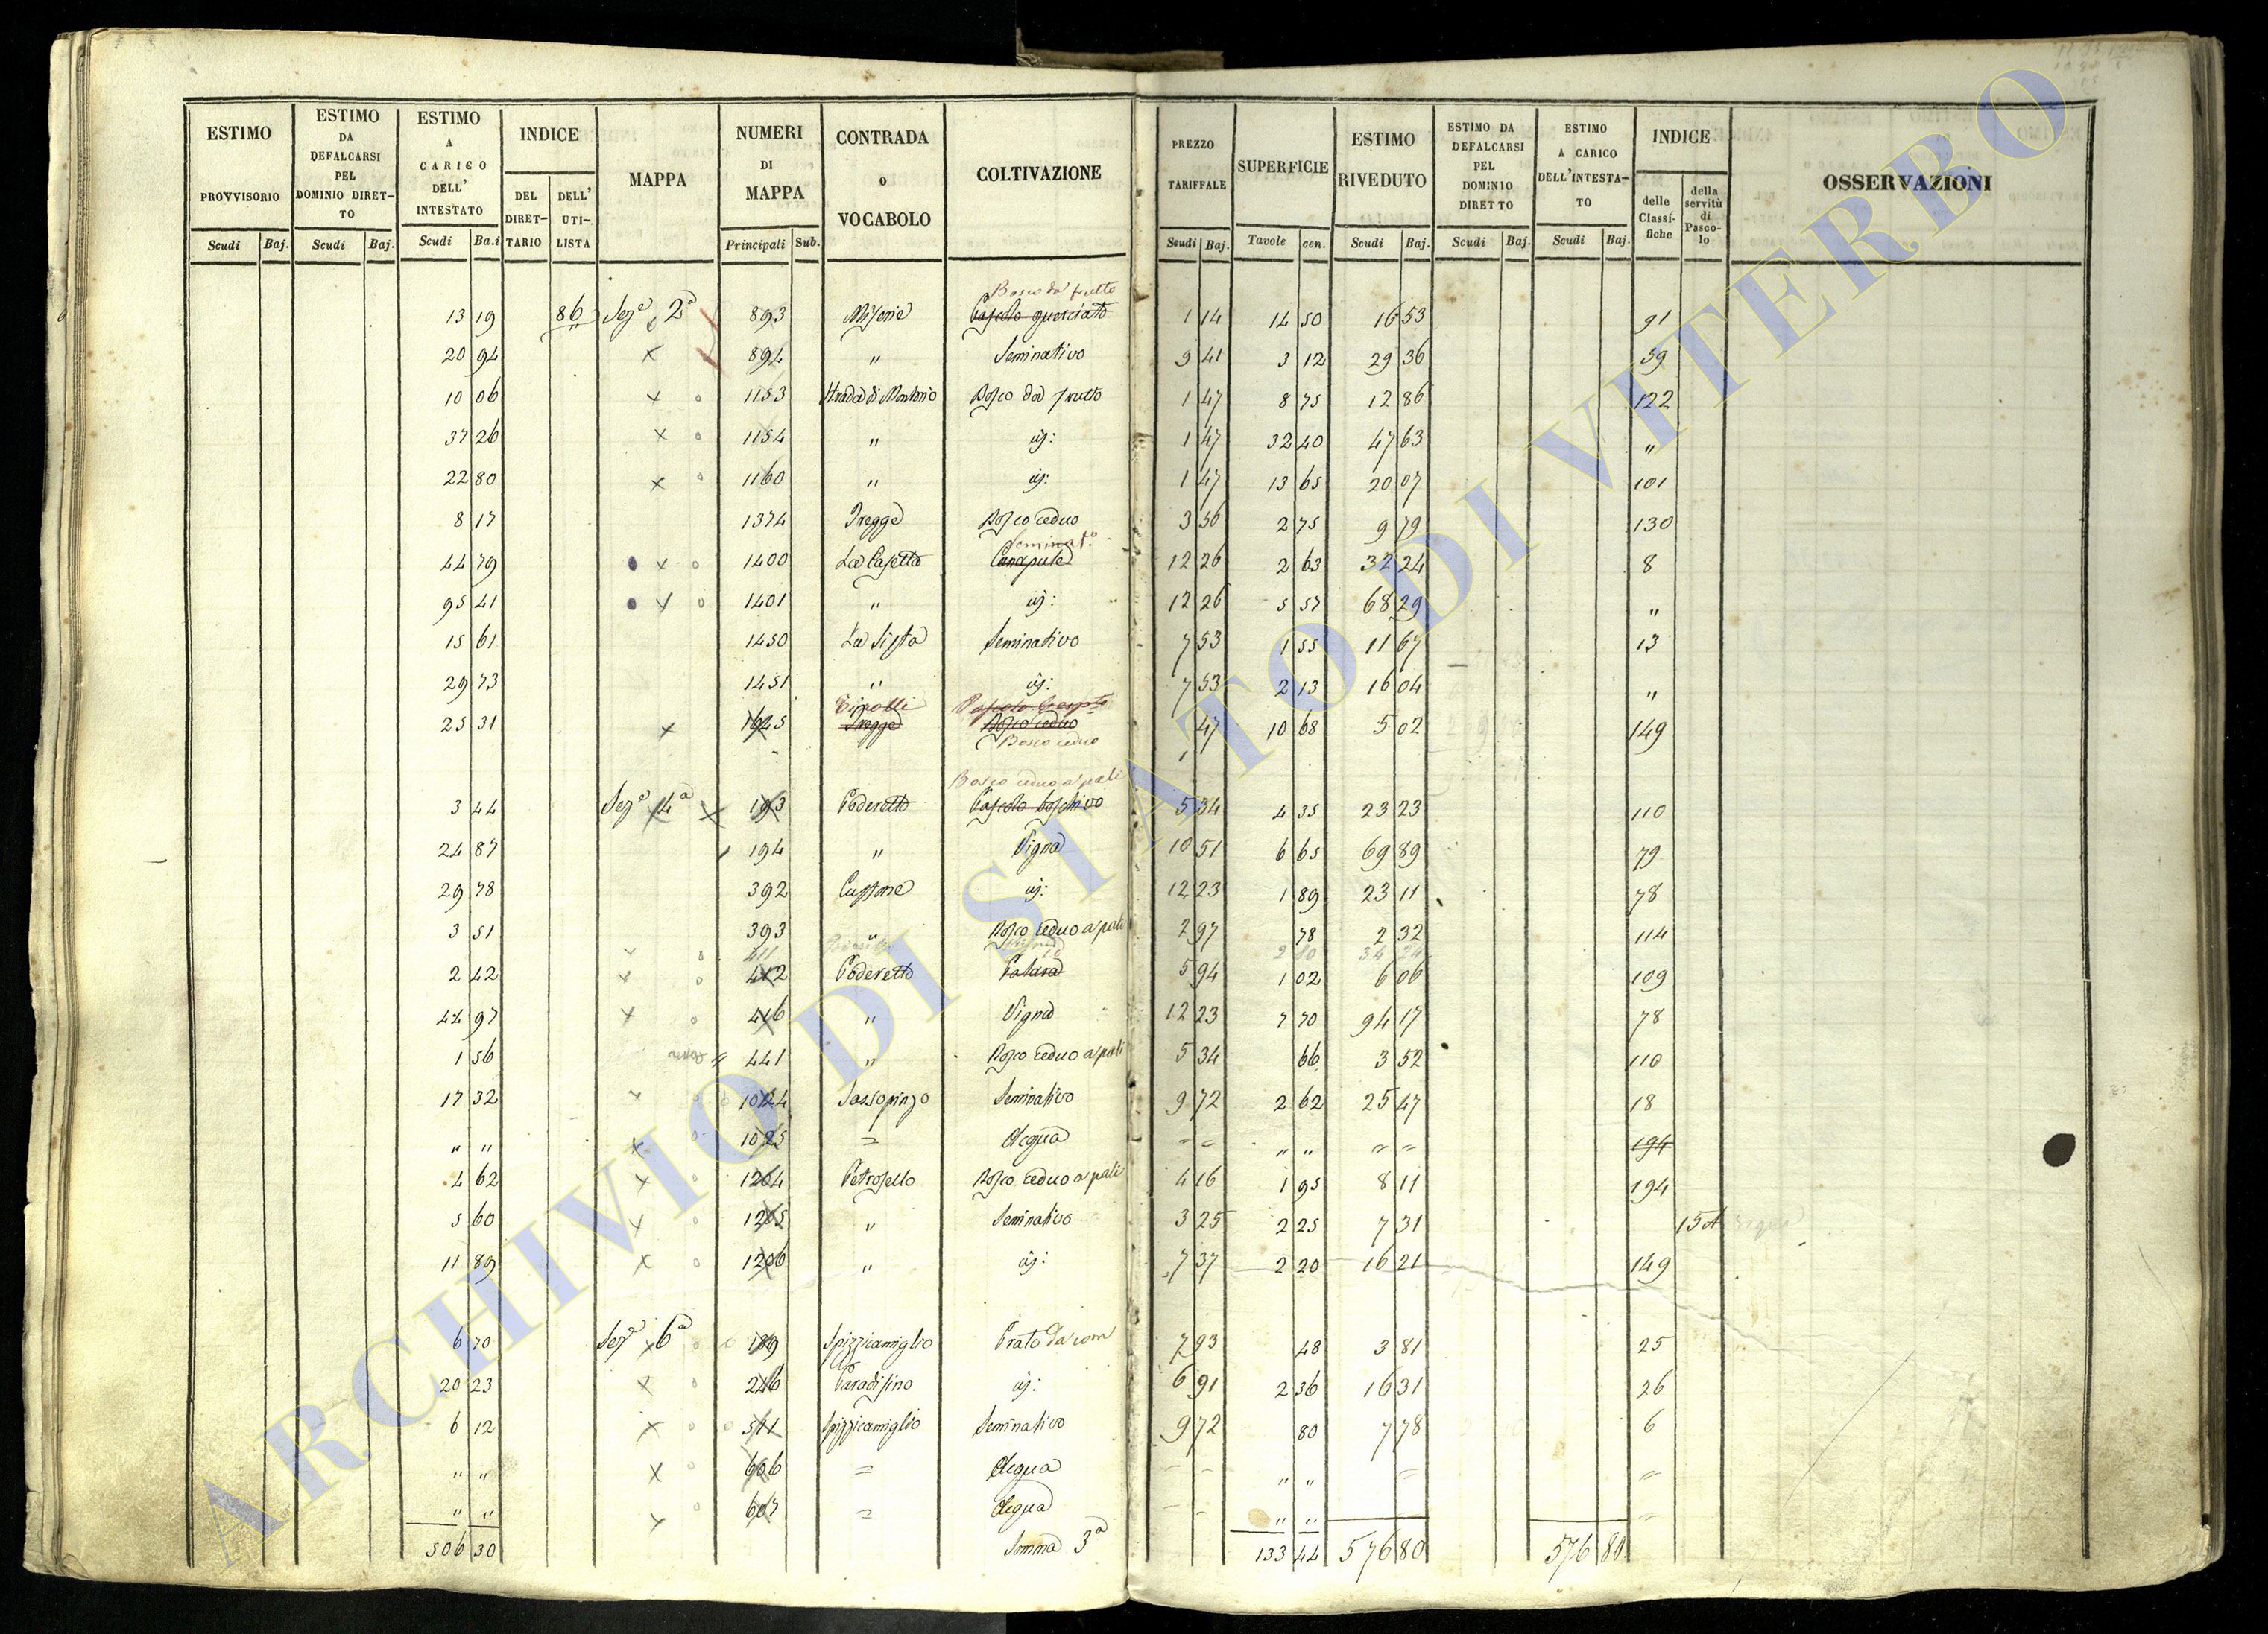 ESTIMO PROVVISORIO Scudi Baj.
ESTIMO DA DEFALCARSI PEL DOMINIO DIRETTO Scudi Baj.
ESTIMO A CARICO DELL' INTESTATO Scudi Ba.i
INDICE DEL DIRETTARIO DELL' UTILISTA
MAPPA
NUMERI DI MAPPA Principali Sub.
CONTRADA o VOCABOLO
COLTIVAZIONE
PREZZO TARIFFALE Scudi Baj.
SUPERFICIE Tavole cen.
ESTIMO RIVEDUTO Scudi Baj.
ESTIMO DA DEFALCARSI PEL DOMINIO DIRETTO Scudi Baj.
ESTIMO A CARICO DELL'INTESTATO Scudi Baj.
INDICE delle Classifiche della servitù di Pascolo
OSSERVAZIONI
Bosco da frutto
13 19 86 Sez.e 2a 893 Pascolo querciato 1 14 14 50 16 53 91
20 94 894 " Seminativo 9 41 3 12 29 36 59
10 06 1153 Strada di Montorio Bosco da frutto 1 47 8 75 12 86 122
37 26 1154 " id: 1 47 32 40 47 63 "
22 80 1160 " id: 1 47 13 65 20 07 101
8 17 1374 Bosco ceduo 3 56 2 75 9 79 130
Seminat.o
44 79 1400 La Casetta Canapule 12 26 2 63 32 24 8
95 41 1401 " id: 12 26 5 57 68 29 "
15 61 1450 Seminativo 7 53 1 55 11 67 13
29 73 1451 " id: 7 53 2 13 16 04 "
25 31 1645 Bosco ceduo 47 10 68 5 02 149
Bosco ceduo
Bosco ceduo a pali
3 44 Sez.e 4a 193 Poderetto Pascolo boschivo 5 34 4 35 23 23 110
24 87 194 " Vigna 10 51 6 65 69 89 79
29 78 392 id: 12 23 1 89 23 11 78
3 51 393 " Bosco ceduo a pali 2 97 78 2 32 114
2 42 412 Poderetto 5 94 1 02 6 06 109
44 97 416 " Vigna 12 23 7 70 94 17 78
1 56 441 " Bosco ceduo a pali 5 34 66 3 52 110
17 32 1024 Sassopinzo Seminativo 9 72 2 62 25 47 18
" " 1025 = Acqua " " 194
4 62 1204 Petrosello Bosco ceduo a pali 4 16 1 95 8 11 194
5 60 1205 " Seminativo 3 25 2 25 7 31 15 A
11 89 1206 " id: 7 37 2 20 16 21 149
6 70 Sez.e 6a 189 Spizzicamiglio Prato da com 7 93 48 3 81 25
20 23 246 Paradisino id: 6 91 2 36 16 31 26
6 12 511 Spizzicamiglio Seminativo 9 72 80 7 78 6
" " 606 = Acqua " "
" " 607 = Acqua " "
506 30 Somma 3a 133 44 576 80 576 80
ARCHIVIO DI STATO DI VITERBO